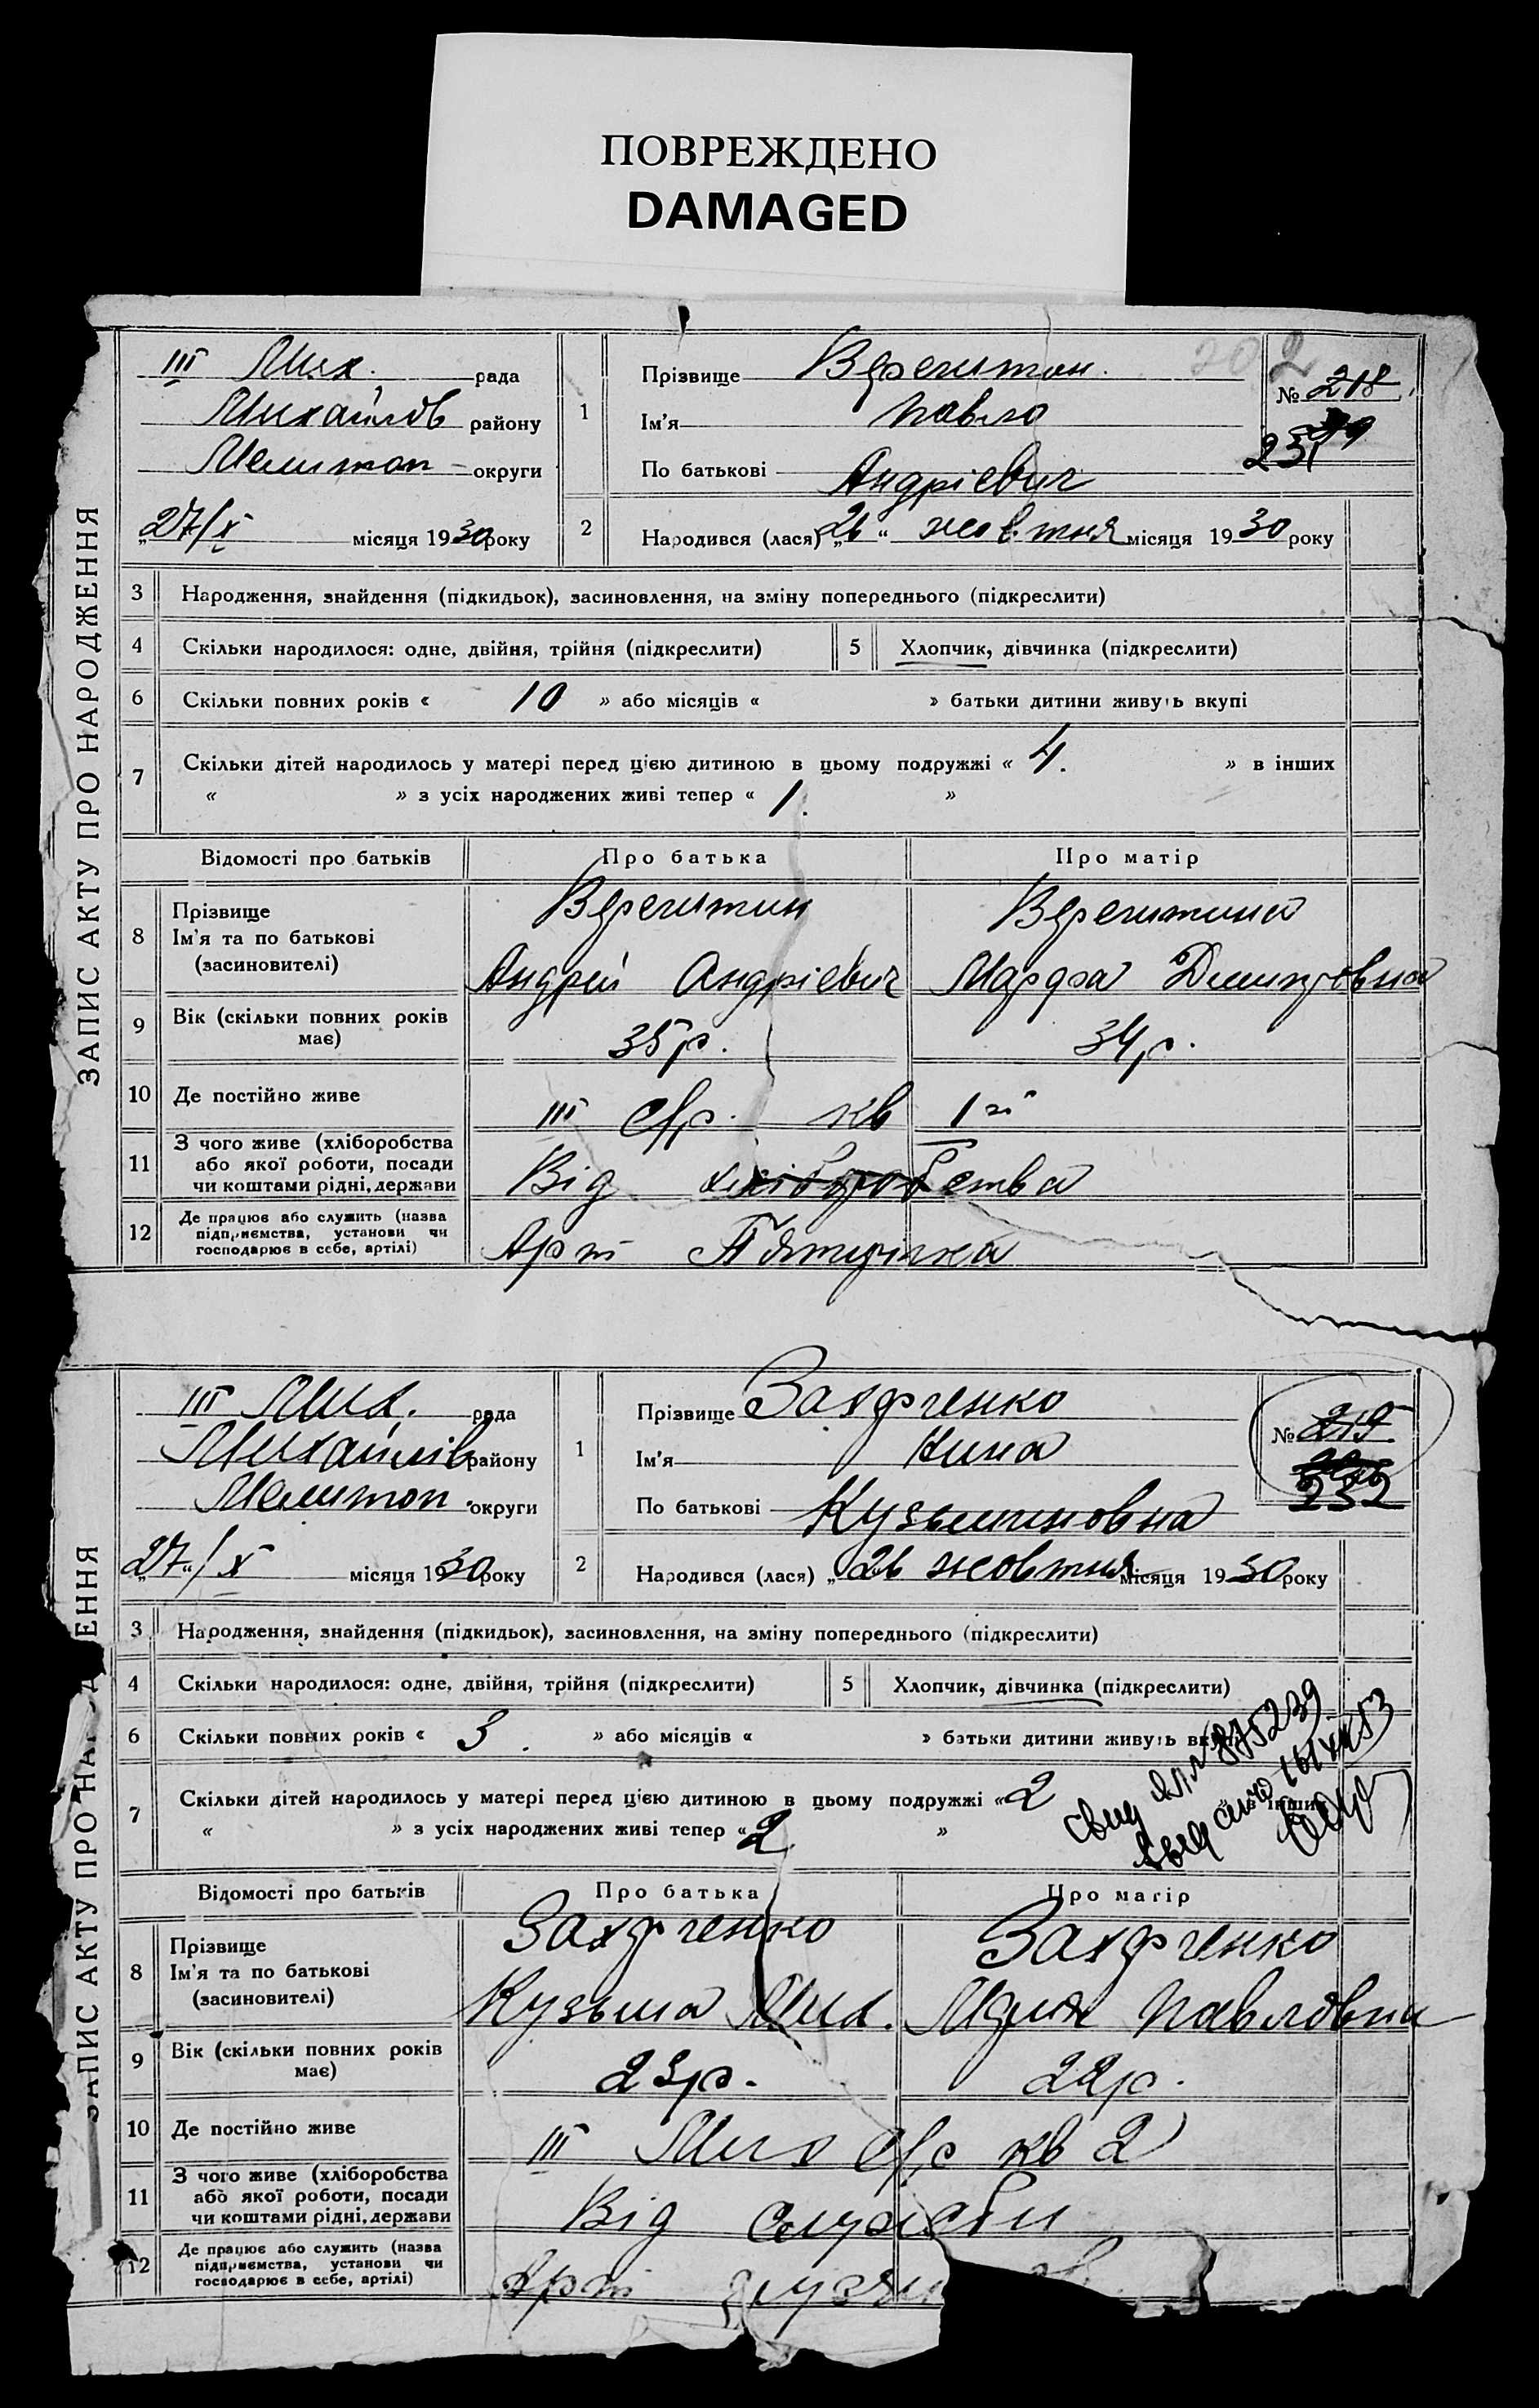 ПОВРЕЖДЕНО
DAMAGED
ЗАПИС АКТУ ПРО НАРОДЖЕННЯ
III Мих. рада
Михайлов району
Мелитоп округи
„27/X місяця 1930 року
1
Прізвище
Ім'я Павло
По батькові Андріевич
202
№ 218
231
2 Народився (лася) „26“ жовтня місяця 1930 року
3 Народження, знайдення (підкидьок), засиновлення, на зміну попереднього (підкреслити)
4 Скільки народилося: одне, двійня, трійня (підкреслити) 5 Хлопчик, дівчинка (підкреслити)
6 Скільки повних років « 10 » або місяців « » батьки дитини живуть вкупі
7 Скільки дітей народилось у матері перед цією дитиною в цьому подружжі « 4. » в інших
« » з усіх народжених живі тепер « 1. »
Відомості про батьків Про батька Про матір
8 Прізвище
Ім'я та по батькові
(засновителі)
Андрей Андріевич Марфа
9 Вік (скільки повних років має) 35 р. 34 р.
10 Де постійно живе III с/р. кв 1
11 З чого живе (хліборобства або якої роботи, посади чи коштами рідні, держави Від хліборобства
12 Де працює або служить (назва підприємства, установи чи господарює в себе, артілі) Арт Пятирічка
ЗАПИС АКТУ ПРО НА ЕННЯ
III Мих. рада
Михайлів району
Мелитоп округи
„27“/X місяця 1930 року
1
Прізвище Захарченко
Ім'я Нина
По батькові Кузьминовна
№ 219
232
2 Народився (лася) „26 жовтня місяця 1930 року
3 Народження, знайдення (підкидьок), засиновлення, на зміну попереднього (підкреслити)
4 Скільки народилося: одне, двійня, трійня (підкреслити) 5 Хлопчик, дівчинка (підкреслити)
6 Скільки повних років « 3. » або місяців « » батьки дитини живуть вкупі
7 Скільки дітей народилось у матері перед цією дитиною в цьому подружжі « 2 » в інших
« » з усіх народжених живі тепер « 2 »
свид 875239
выд
Відомості про батьків Про батька Про матір
8 Прізвище
Ім'я та по батькові
(засиновителі)
Захарченко Захарченко
Кузьма Мих. Мария Павловна
9 Вік (скільки повних років має) 23 р. 22 р.
10 Де постійно живе III Мих с/р кв 2
11 З чого живе (хліборобства або якої роботи, посади чи коштами рідні, держави Від служби
12 Де працює або служить (назва підприємства, установи чи господарює в себе, артілі) Арт